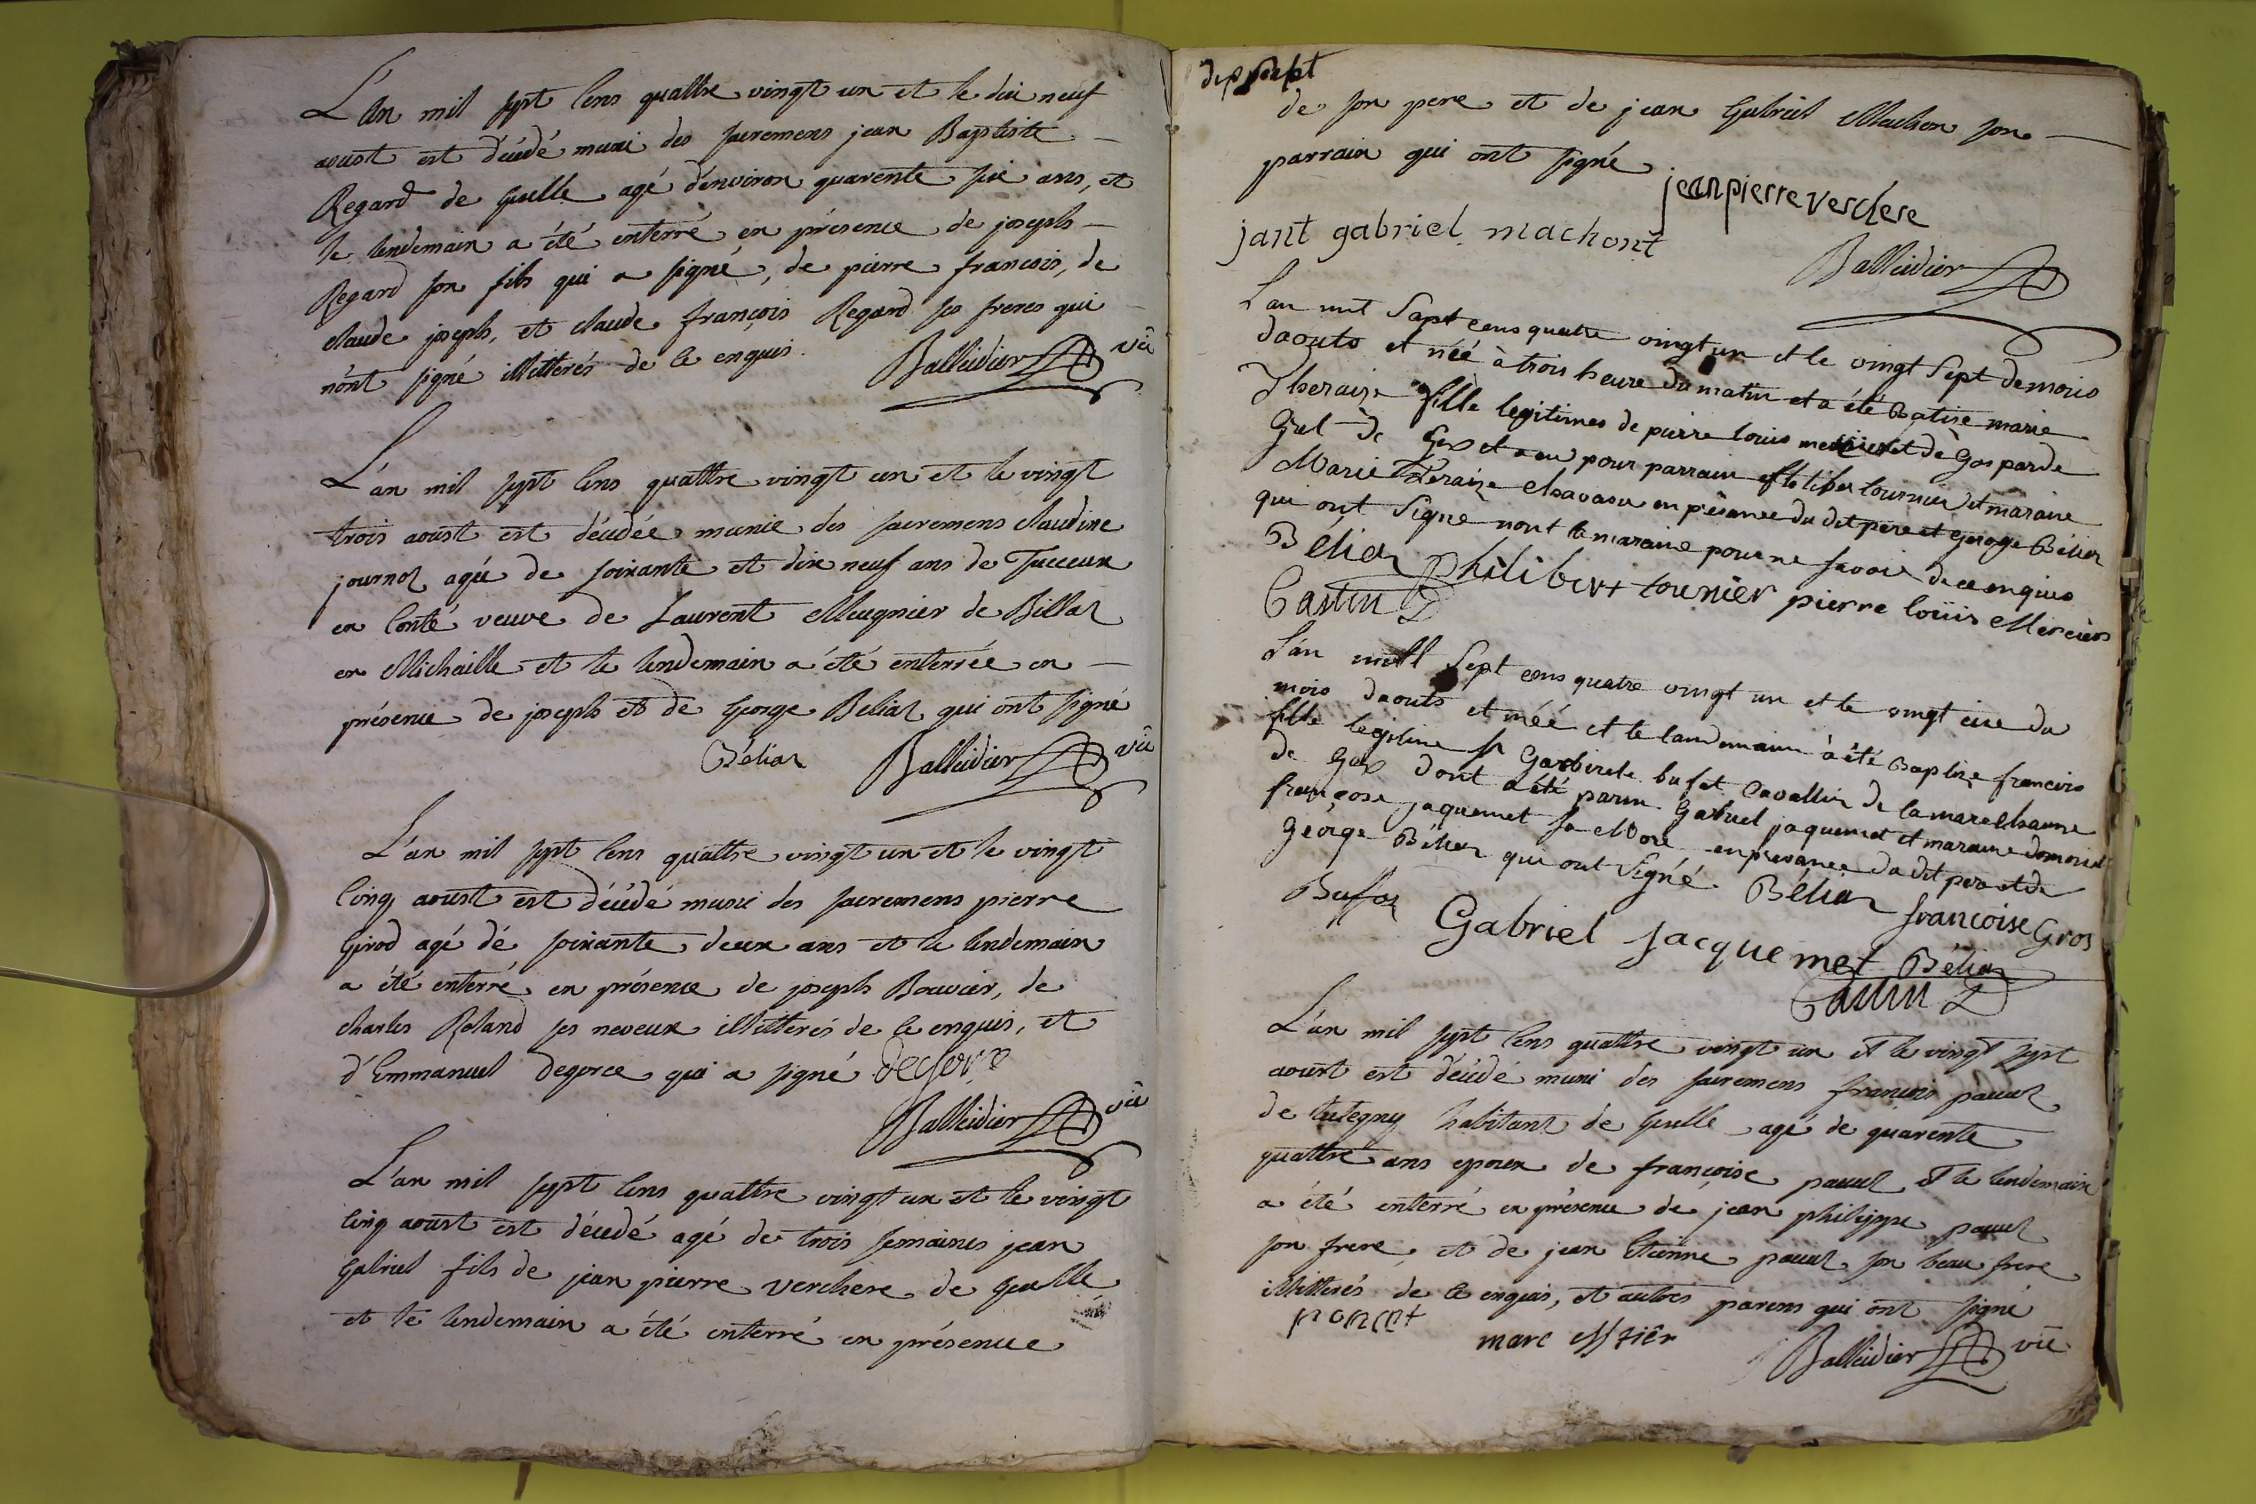 L'An mil sept cens quattre vingt un et le dix neuf
aoust est décédé muni des sacremens jean Baptiste
Regard de Gielle agé d'environ quarente six ans, et
le lendemain a été enterré en présence de joseph
Regard son fils qui a signé, de pierre francois, de
claude joseph, et claude françois Regard ses freres qui
n'ont signé illitterés de ce enquis. Balleidier vû
L'an mil sept cens quattre vingt un et le vingt
trois aoust est décédée munie des sacremens claudine
journoz agée de soixante et dix neuf ans de
en Conté veuve de Laurent Meugnier de Billiaz
en Michaille et le lendemain a été enterrée en
présence de joseph et de George Beliaz qui ont signé
Béliaz Balleidier vû
L'an mil sept cens quattre vingt un et le vingt
cinq aoust est décédé muni des sacremens pierre
Girod agé dé soixante deux ans et le lendemain
a été enterré en présence de joseph Bouvier, de
charles Roland ses neveux illitterés de ce enquis, et
d'Emmanuel degorce qui a signé degorce
Balleidier vû
L'an mil sept cens quattre vingt un et le vingt
cinq aoust est décédé agé de trois semaines jean
Gabriel fils de jean pierre verchere de Gielle
et le lendemain a été enterré en présence
dix sept
de son pere et de jean Gabriel Machon son
parrain qui ont signé
jean pierre verchere
jant gabriel machont
Balleidier
L'an mil Sapt cens quatre vingt un et le vingt Sept de mois
daouts et néé à trois heure du matin et a été Batise marie
Theraise fille legitimes de pierre louis mercier et dè Gosparde
de Gex et a eu pour parrain filiber tournier et maraine
Marie Teraize Chavasu en présance du dit pere et George Bélier
qui ont Signé nont la maraine pour ne savoir de ce enquis
Beliaz philibert tournier pierre loüis Mercier
Castin
L'an mill Sept cens quatre vingt un et le vingt cixe du
mois daouts et néé et le landemain à été Baptize francois
fille legitime sr Gasbirele bufet Cavallier de la marechausse
de Gex dont a été parin Gabriel jaquemet et maraine
françose jaquemet sa en presance du dit pere et de
George Bélier qui ont Signé Béliaz francoise Gros
Buffaz Gabriel Jacquemet Béliaz
Castin
L'an mil sept cens quattre vingt un et le vingt sept
aoust est décédé muni des sacremens francois
de habitant de Gielle agé de quarente
quattre ans epoux de francoise et le lendemain
a été enterré en présence de jean philippe
son frere, et de jean Etienne son beau frere
illitterés de ce enquis, et autres parens qui ont signé
poncet marc Balleidier vû